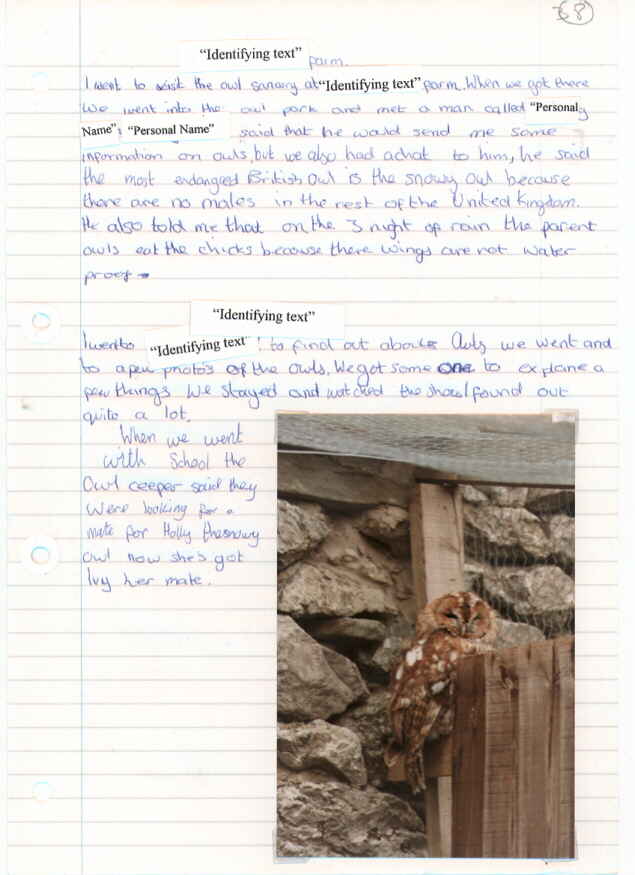 38
“Identifying text” farm.
I went to visit the owl sancury at “Identifying text” farm. When we got there
We went into the owl park and met a man called “Personal
Name”; “Personal Name” said that he would send me some
information on owls, but we also had a chat to him, he said
the most endangred British Owl is the snowy owl because
there are no males in the rest of the United Kingdom.
He also told me that on the 3 night of rain the parent
owls eat the chicks because there wings are not water
proof
“Identifying text”
I went to “Identifying text” : to find out about Owls we went and
to a few photo's of the owls. We got some one to explane a
few things We stayed and watched the show I found out
quite a lot.
When we went
with School the
Owl ceeper said they
were looking for a
mate for Holly the snowy
owl now she's got
Ivy her mate.